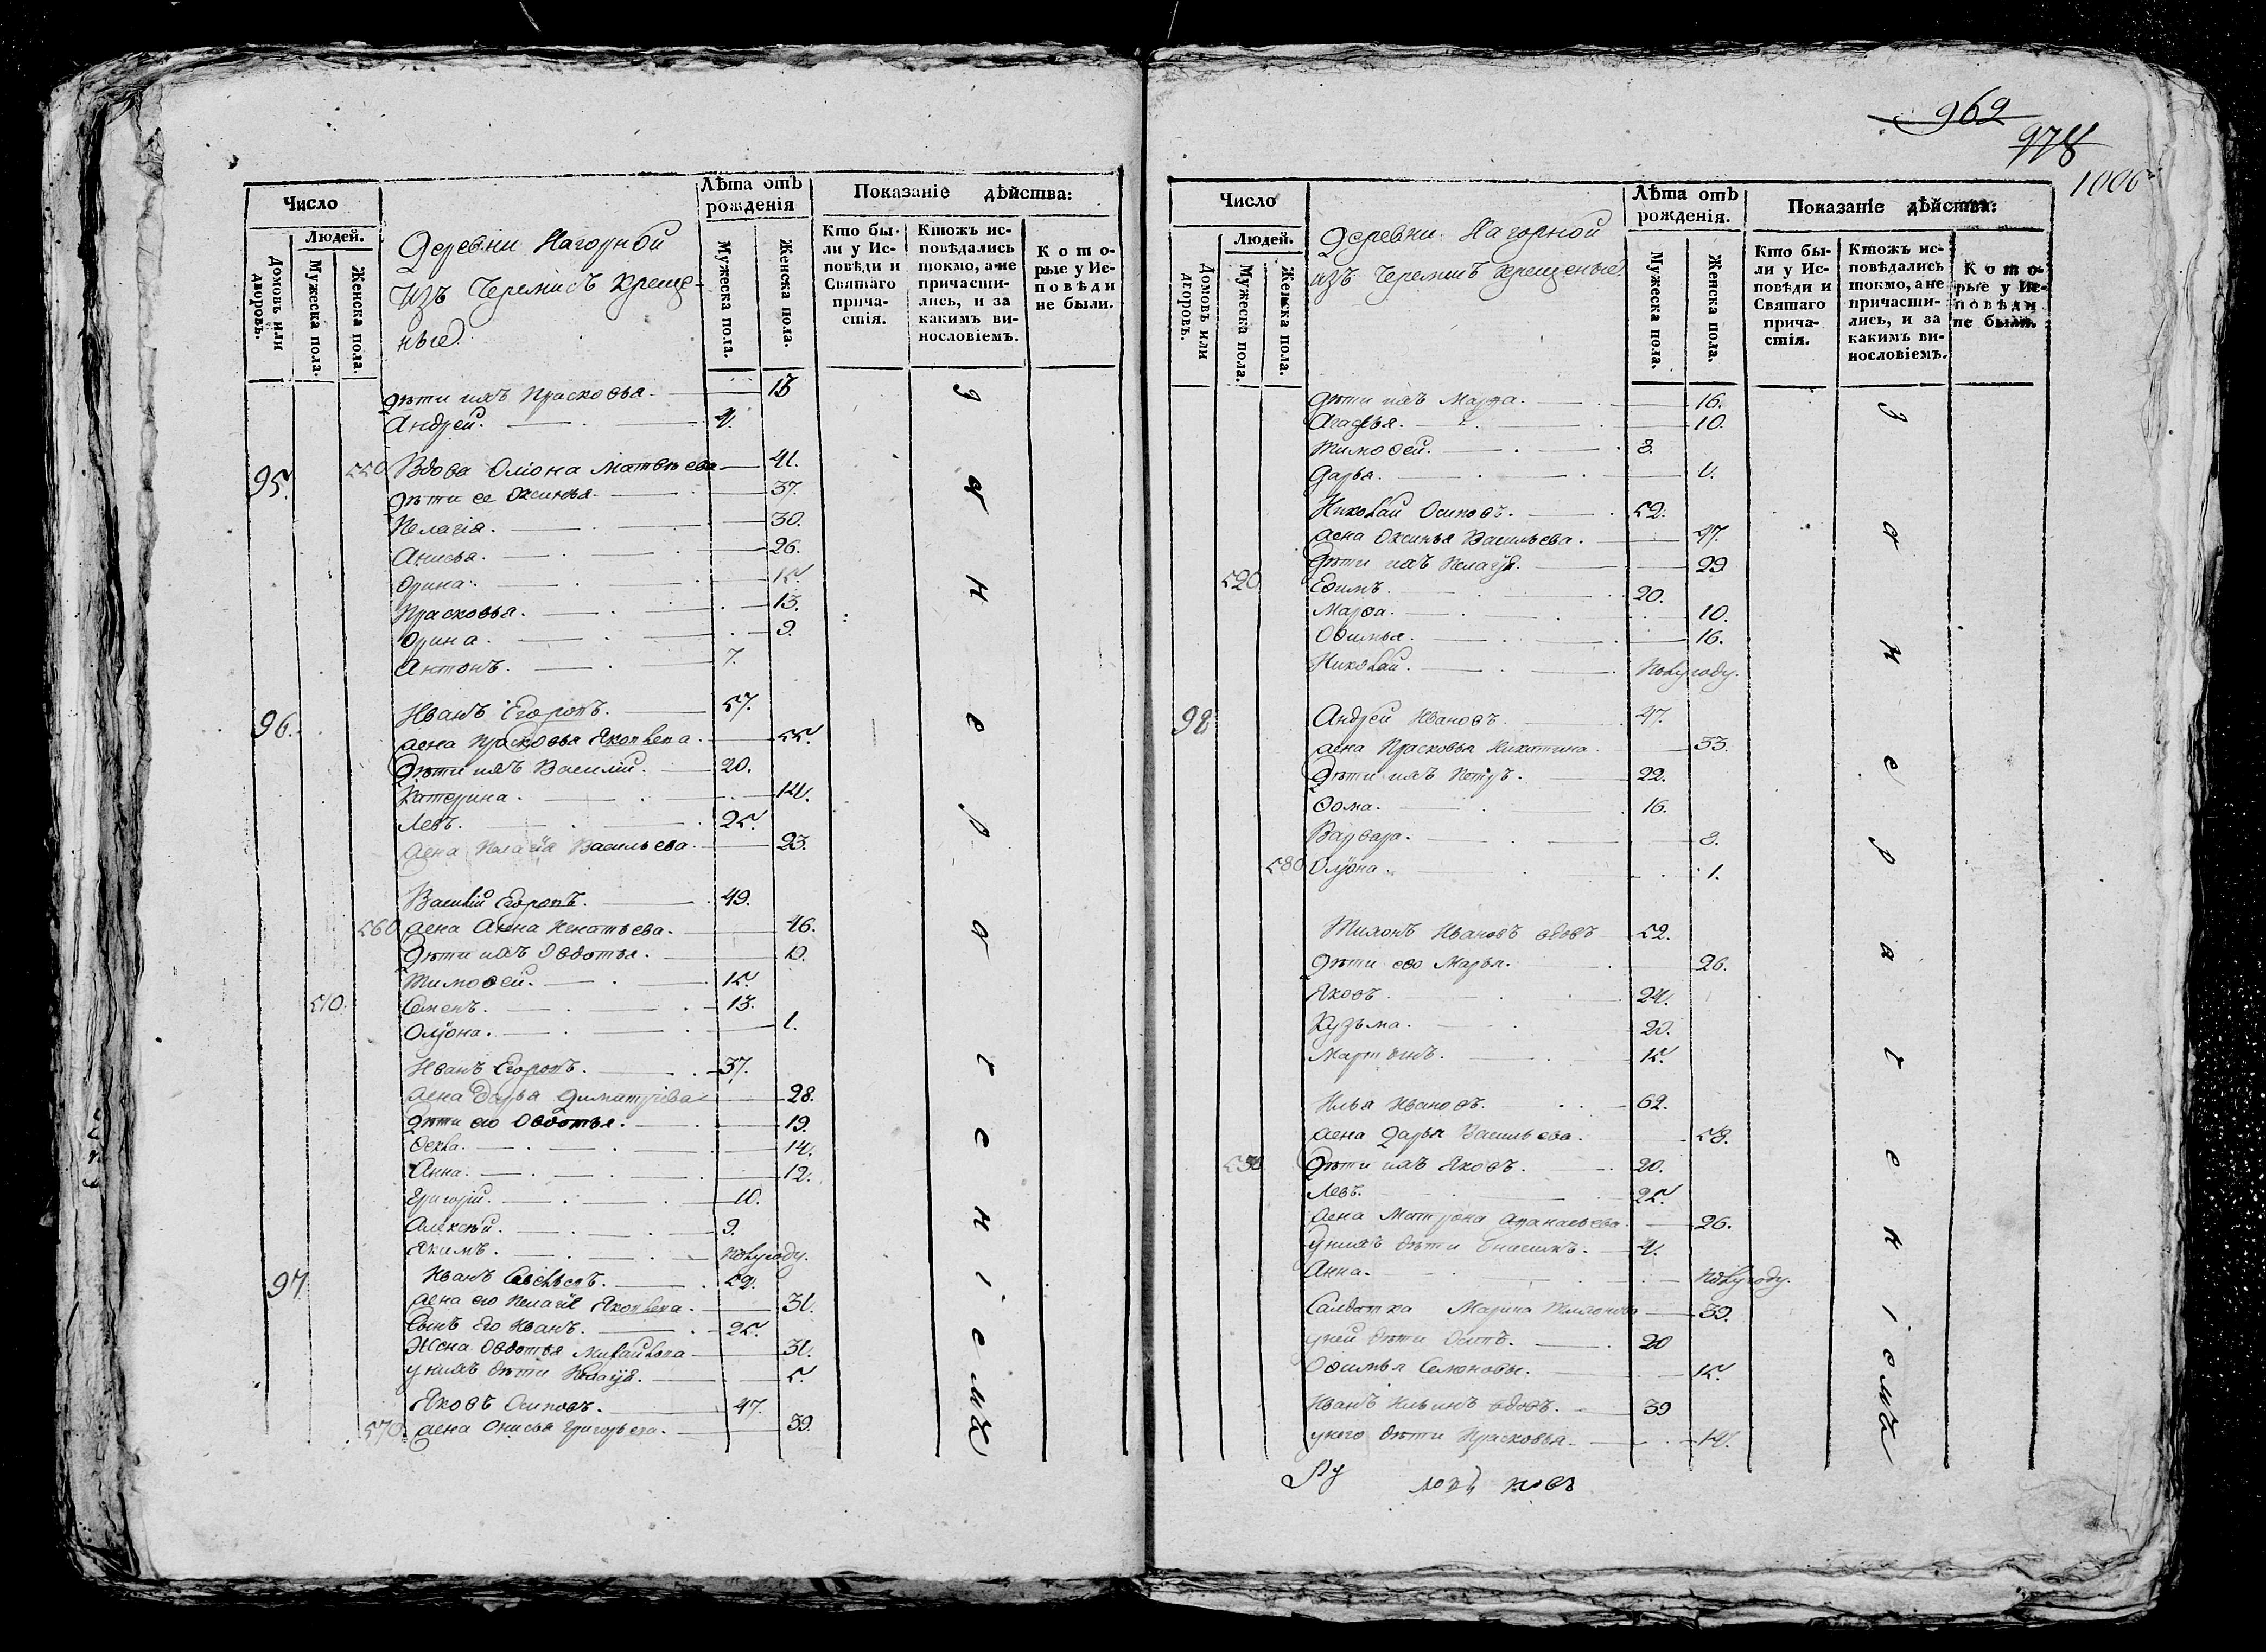 969
978
1006
Число
Людей.
Домовъ или дворовъ.
Мужеска пола.
Женска пола.
Деревни Нагорной
изъ Черемисъ креще-
ные
Лѣта отъ рожденія
Мужеска пола.
Женска пола.
Показаніе дѣйства:
Кто бы-
ли у Ис-
повѣди и
Святаго
прича-
стія.
Ктожъ ис-
повѣдались
токмо, а не
причасти-
лись, и за
какимъ ви-
нословіемъ.
Кото-
рые у Ис-
повѣди
не были.
дѣти ихъ Прасковья. 13
Андрей. 4.
95. 550 Вдова Оліона Матвѣева 41.
дѣти ее Оксинья. 37.
Пелагія. 30.
Анисья. 26.
Орина. 15.
Прасковья. 13.
Орина. 9.
Антонъ. 7.
96. Иванъ Егоровъ. 57.
жена Прасковья Яковлева. 55.
дѣти ихъ Василій. 20.
Катерина. 14.
Левъ. 25.
жена Пелагія Васильева. 23.
Василій Егоровъ. 49.
560 жена Анна Игнатьева. 46.
дѣти ихъ Овдотья.
Тимоѳей. 15.
510. Семенъ. 13.
Олїона. 1.
Иванъ Егоровъ. 37.
жена Дарья Димитріева 28.
дѣти ею Овдотья. 19.
Ѳекла. 14.
Анна. 12.
Григорій. 10.
Алексѣй. 9.
Якимъ. полугоду.
97 Иванъ Савельевъ. 52.
жена ею Пелагія Яковлева. 31.
Сынъ Его Иванъ. 25.
Жена Овдотья Михайлова 31.
у нихъ дѣти Пелагїя. 5.
Яковъ Осиповъ. 47.
570. жена Онисья Григорьева. 39.
д а н е р а ч е н і е мъ
Число
Людей.
Домовъ или дворовъ.
Мужеска пола.
Женска пола.
Деревни Нагорной
изъ Черемисъ крещеные.
Лѣта отъ рожденія.
Мужеска пола.
Женска пола.
Показаніе дѣйства:
Кто бы-
ли у Ис-
повѣди и
Святаго
прича-
стія.
Ктожъ ис-
повѣдались
токмо, а не
причасти-
лись, и за
какимъ ви-
нословіемъ.
Кото-
рые у Ис-
повѣди
не были.
дѣти ихъ Марѳа. 16.
Агаѳья. 10.
Тимоѳей. 8.
Дарья. 4.
Николай Осиповъ. 52.
жена Оксинья Васильева. 47.
дѣти ихъ Пелагїя. 29
520 Ефимъ. 20.
Марѳа. 10.
Офимья. 16.
Николай. Полугоду.
98 Андрей Ивановъ. 47.
жена Прасковья Никитина. 33.
дѣти ихъ Петръ. 22.
Ѳома. 16.
Варвара. 8.
580 Олїона. 1.
Тихонъ Ивановъ вдовъ 52.
дѣти ево Марья. 26.
Яковъ. 24.
Кузьма. 20.
Мартынъ. 15.
Илья Ивановъ. 62.
жена Дарья Васильева. 58.
530 дѣти ихъ Яковъ. 20.
Левъ. 25.
жена Матрона Афанасьева. 26.
у нихъ дѣти Анисимъ. 4.
Анна. Полугоду.
Салдатка Марина Тихонова 39.
у ней дѣти Осипъ. 20
Офимья Семеновы. 15.
Иванъ Ильинъ вдовъ. 39
у него дѣти Прасковья. 14.
д а н е р а ч е н і е мъ